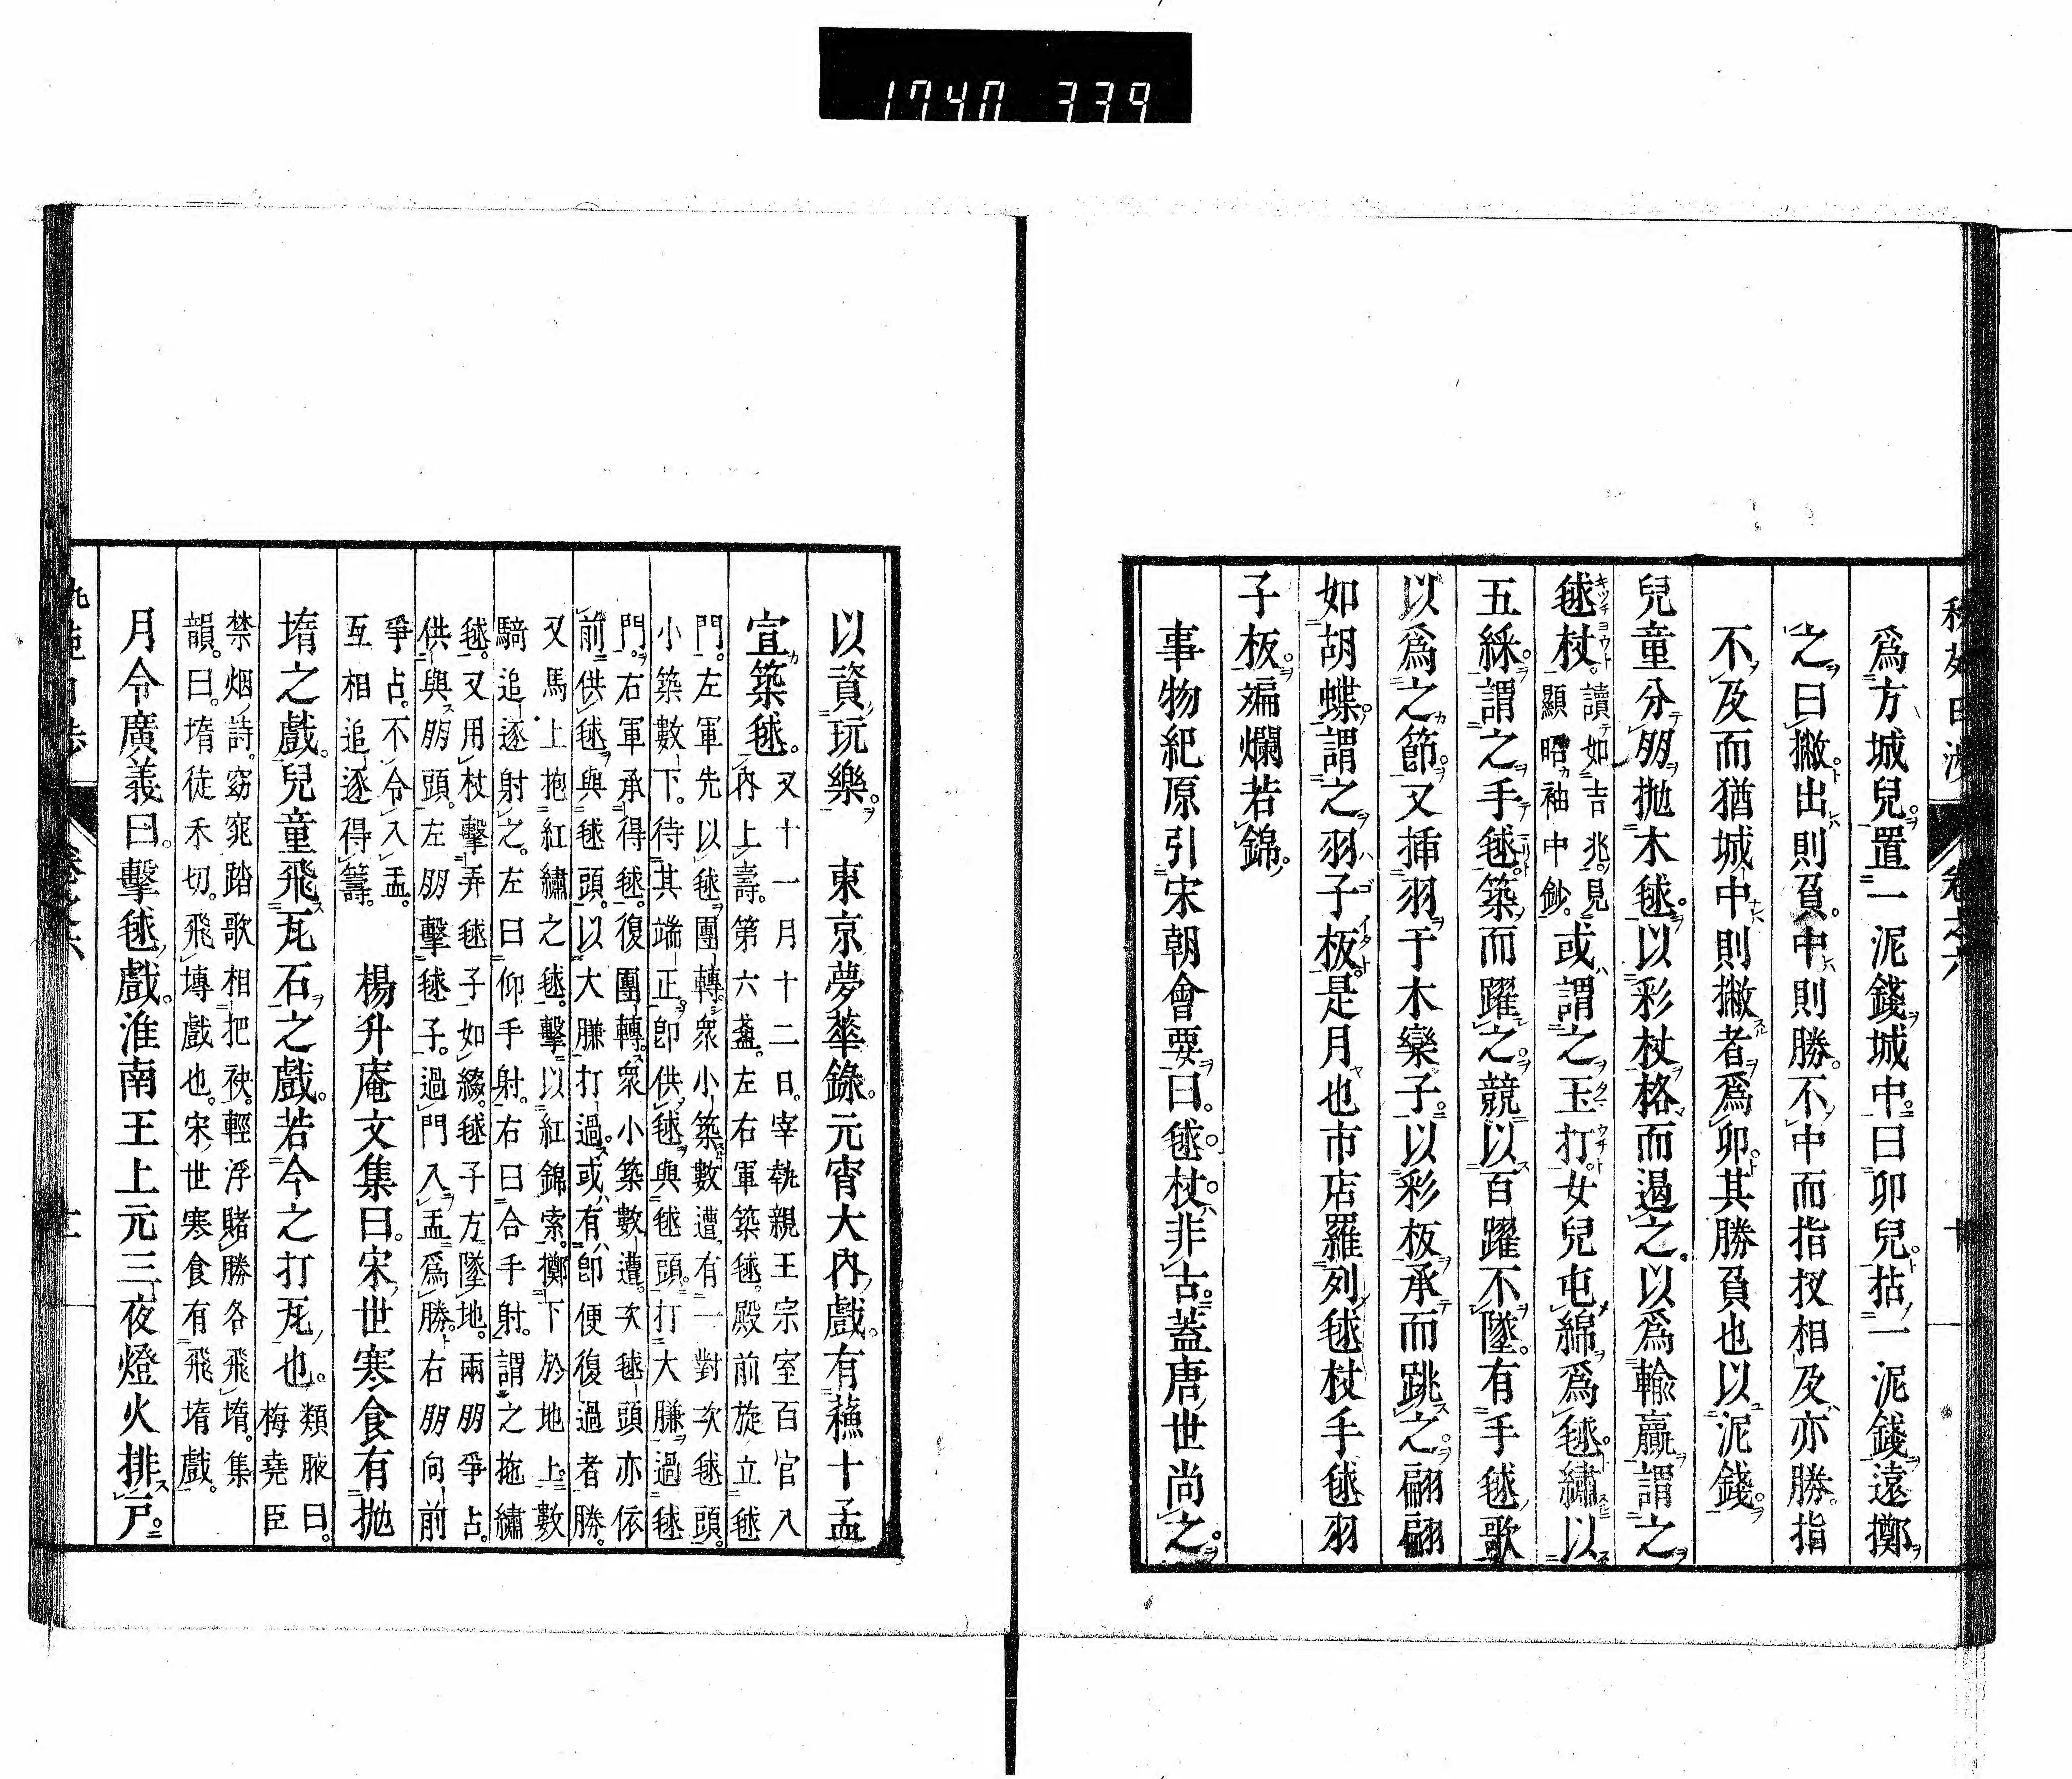 1740 339
爲方城兒。置一泥錢城中。曰卯兒。拈一泥錢遠擲
之曰撇出則負。中則勝。不中而指扠相及亦勝。指
不及而猶城中則撇者爲卯。其勝負也以泥錢。
兒童分朋抛木毬。以彩杖格而過之。以爲輸贏謂之
毬杖。讀如吉兆。見顯昭袖中鈔。或謂之玉打。女兒屯綿爲毬。繡以
五綵。謂之手毬。築而躍之。競以百躍不墜。有手毬歌
以爲之節。又揷羽于木欒子。以彩板承而跳之。翩翩
如胡蝶。謂之羽子板。是月也市店羅列毬杖手毬羽
子板。斒爛若錦。
事物紀原引宋朝會要曰。毬杖。非古。蓋唐世尚之。
以資玩樂。 東京夢華錄。元宵大內戲。有蘓十孟
宣築毬。又十一月十二日。宰執親王宗室百官入
內上壽。第六盞。左右軍築毬。殿前旋立毬
門。左軍先以毬團轉。衆小築數遭。有一對次毬頭。
小築數下。待其端正。卽供毬與毬頭。打大賺過毬
門。右軍承得毬。復團轉。衆小築數遭。次毬頭亦依
前供毬與毬頭。以大賺打過。或有卽便復過者勝。
又馬上抱紅繡之毬。擊以紅錦索。擲下於地上。數
騎追逐射之。左曰仰手射。右曰合手射。謂之拖繡
毬。又用杖擊弄毬子如綴。毬子方墜地。兩朋爭占。
供與朋頭。左朋擊毬子。過門入盂爲勝。右朋向前
爭占。不令入盂。
互相追逐得籌。 楊升庵文集曰。宋世寒食有抛
堶之戲。兒童飛瓦石之戲。若今之打瓦也。類腋曰。梅堯臣
禁烟詩。窈窕踏歌相把袂。輕浮賭勝各飛堶。集
韻。曰。堶徒禾切。飛塼戲也。宋世寒食有飛堶戲。
月令廣義曰。擊毬戲。淮南王上元三夜燈火排戸。